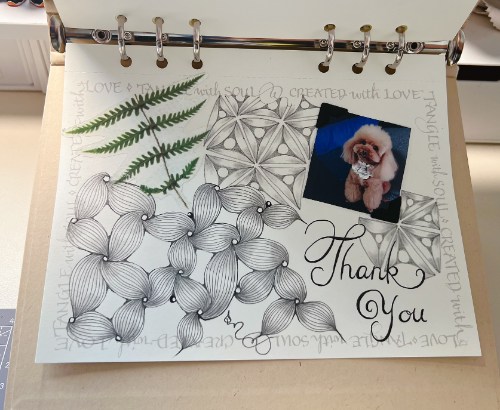 LOVE & TANGLE with SOUL & CREATED with LOVE
TANGLE with SOUL & CREATED with
TANGLE with SOUL & CREATED with
Thank
You
LOVE & TANGLE with SOUL & CREATED with LOVE